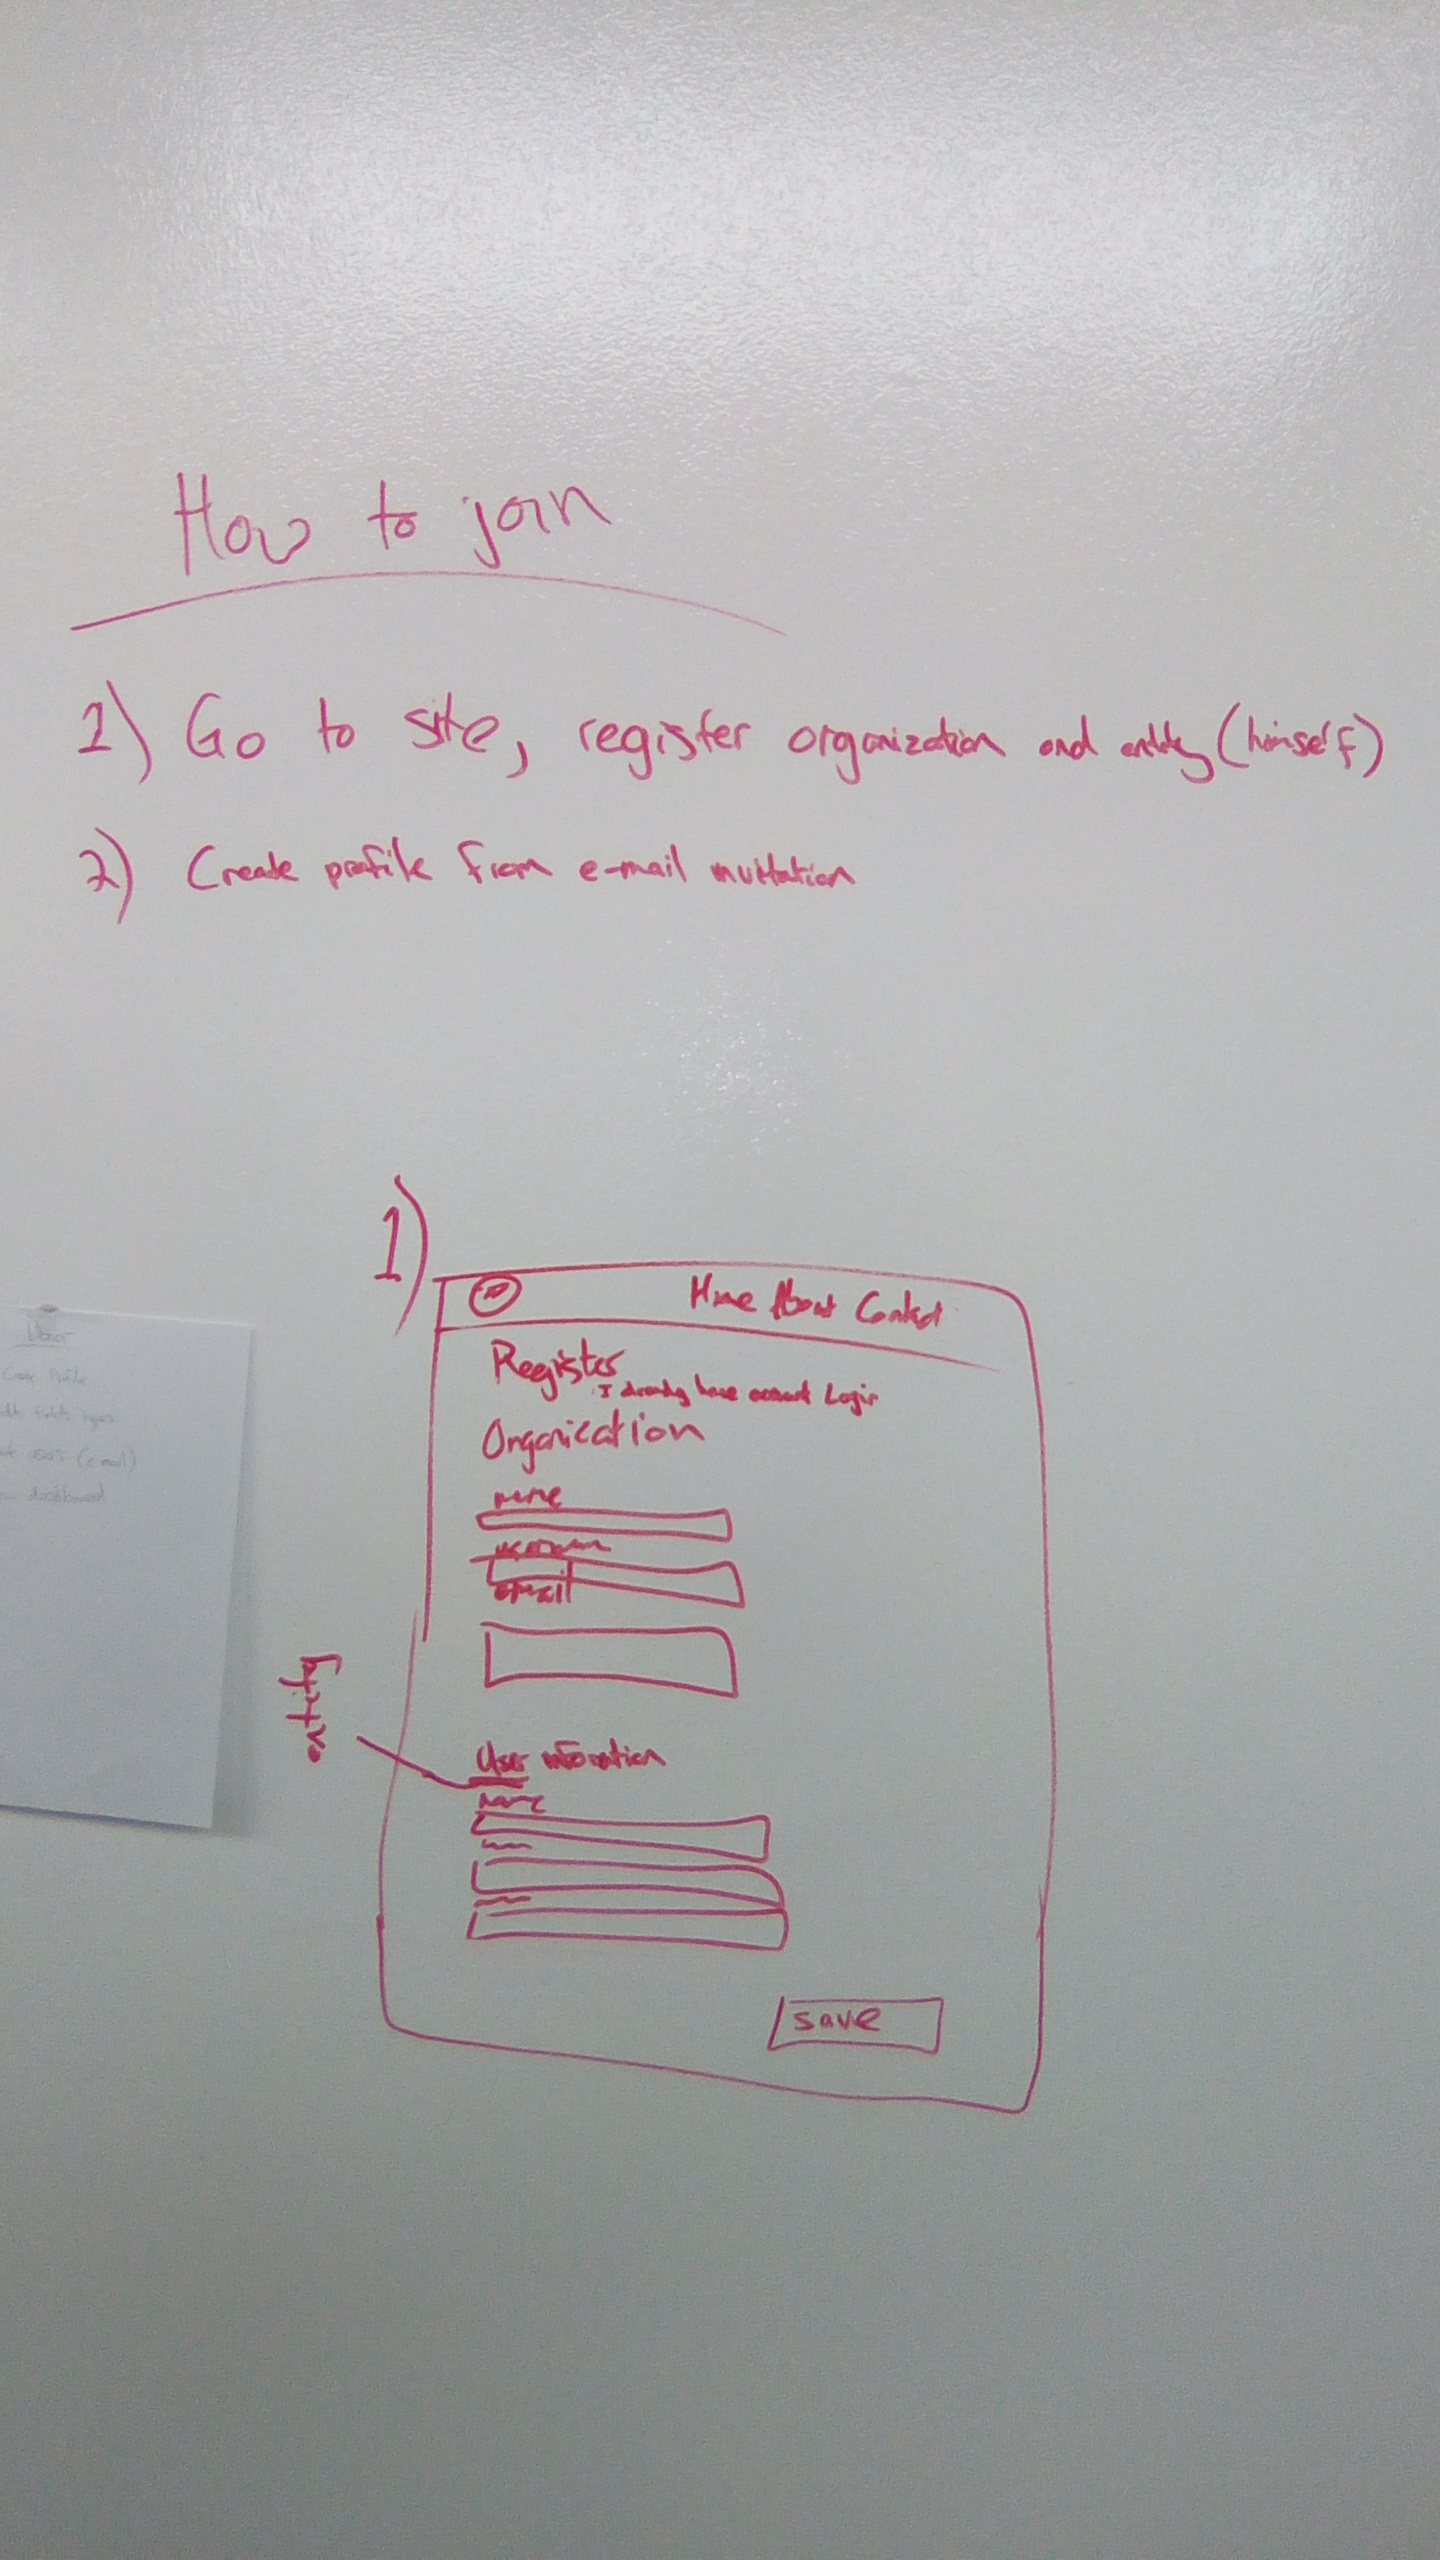 How to join
1) Go to site, register organization and entity (himself)
2) Create profile from e-mail invitation
1)
Home About Contact
Register
I already have account Login
Organication
name
username
email
entity
User information
name
save
Donor
Create Profile
users (e-mail)
dashboard